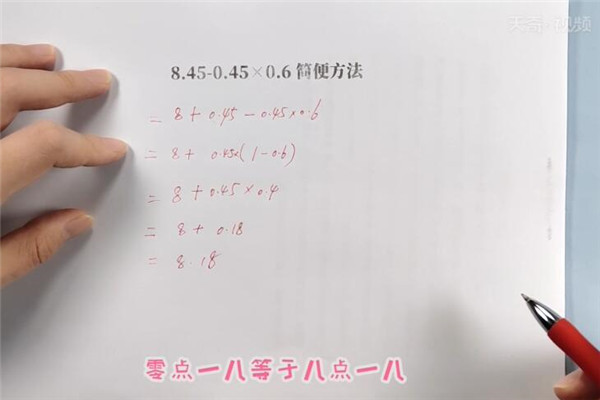 天奇·视频
8.45-0.45×0.6 简便方法
= 8 + 0.45 - 0.45×0.6
= 8 + 0.45×(1-0.6)
= 8 + 0.45×0.4
= 8 + 0.18
= 8.18
零点一八等于八点一八